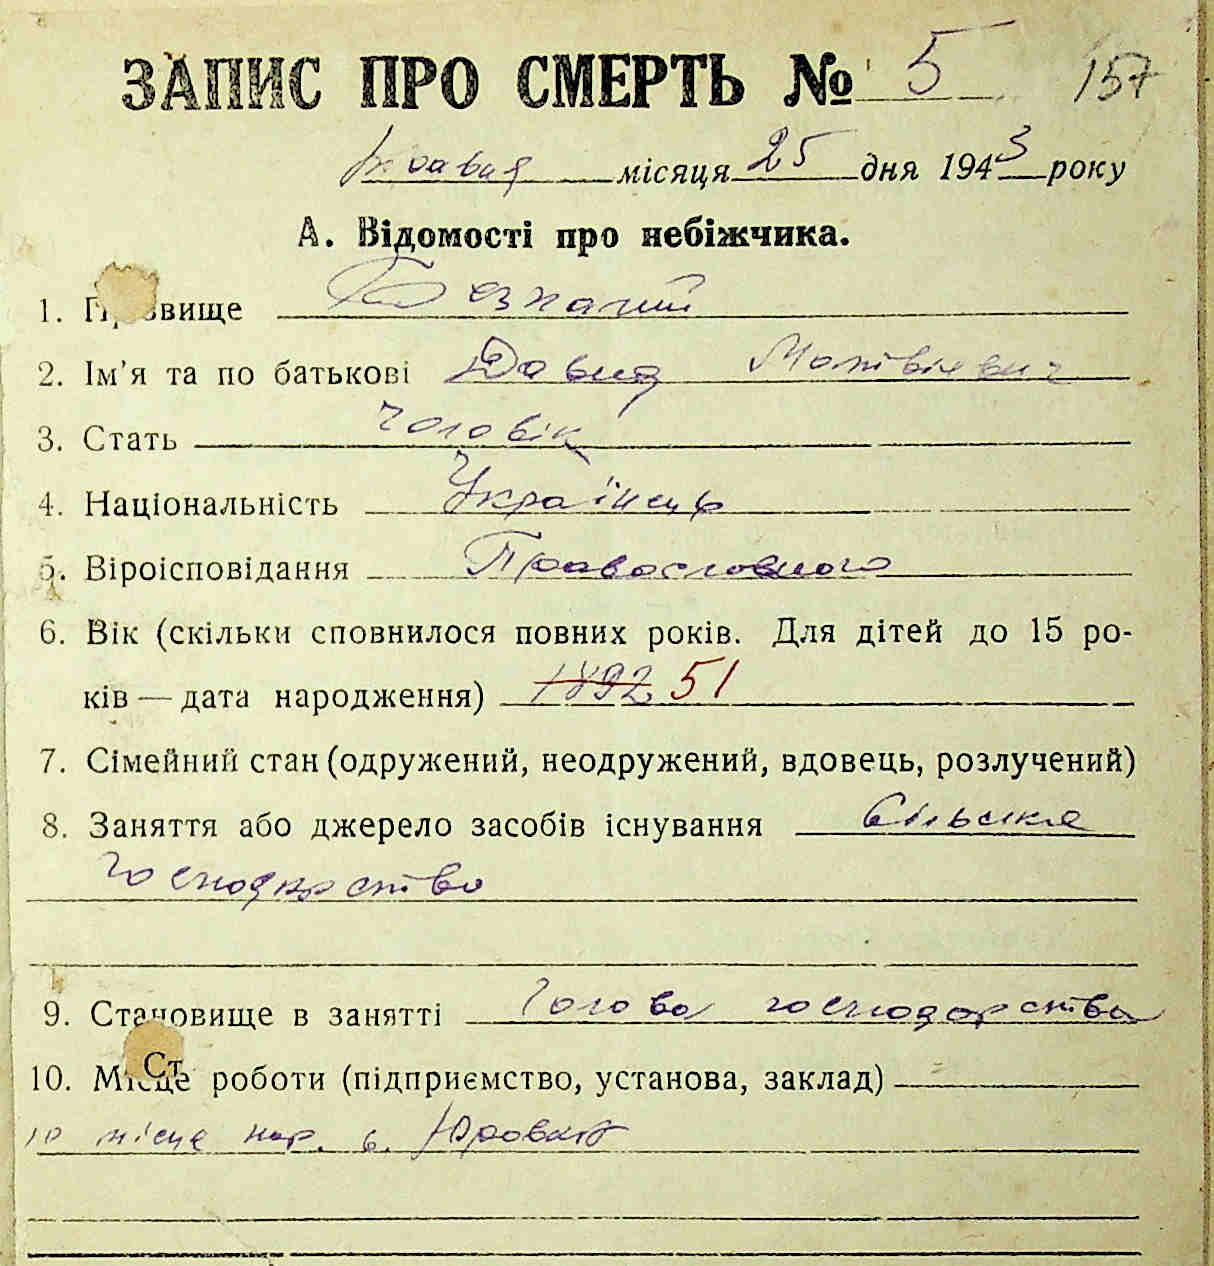 ЗАПИС ПРО СМЕРТЬ № 5 157
травня місяця 25 дня 1943 року
А. Відомості про небіжчика.
1. Прізвище Безналий
2. Ім'я та по батькові Давид Матвієвич
3. Стать Чоловік
4. Національність Українець
5. Віроісповідання Православного
6. Вік (скільки сповнилося повних років. Для дітей до 15 ро-
ків — дата народження) 1892 51
7. Сімейний стан (одружений, неодружений, вдовець, розлучений)
8. Заняття або джерело засобів існування Сільське
господарство
9. Становище в занятті Голова господарства
10. Місце роботи (підприємство, установа, заклад)
10 місце нар. с. Юровка